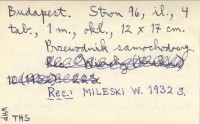 Budapest. Stron 96, il., 4
tab., 1 m., okł., 12 x 17 cm.
Przewodnik samochodowy.
Rec.: MILESKI W. 1932 S.
THS